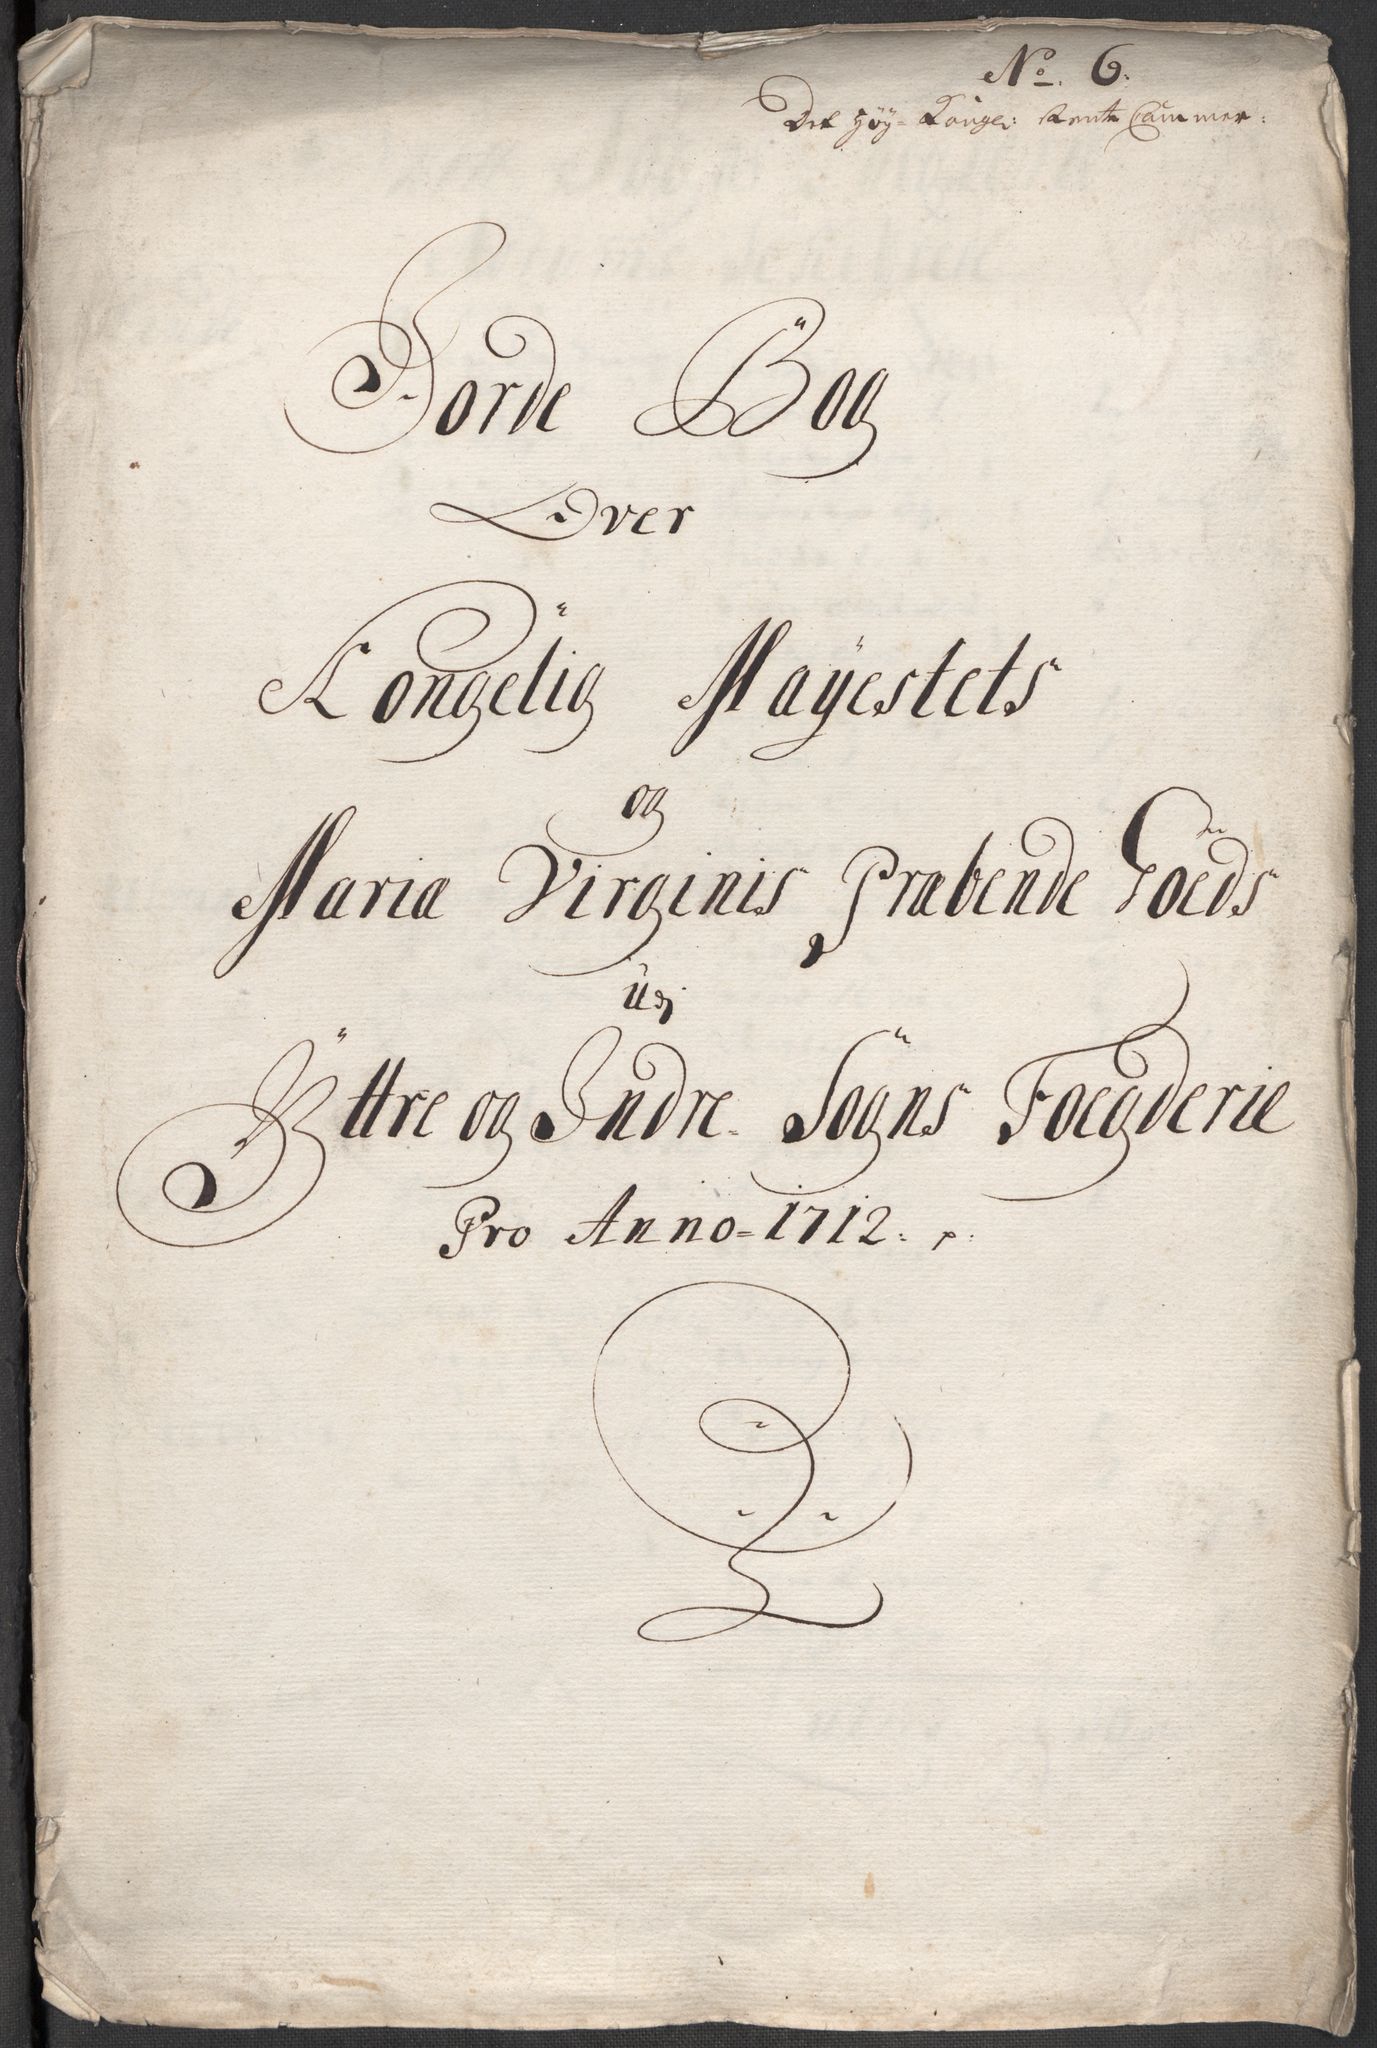 No. 6.
Det Höÿ- Konge: Rente Cammer:
Jorde Bog
Over
Kongelig Mayestets
og
Mariæ Virginis Præbende Goeds
Udj
Ÿttre og Indre Sogns Foegderie
Pro Anno-1712: p: